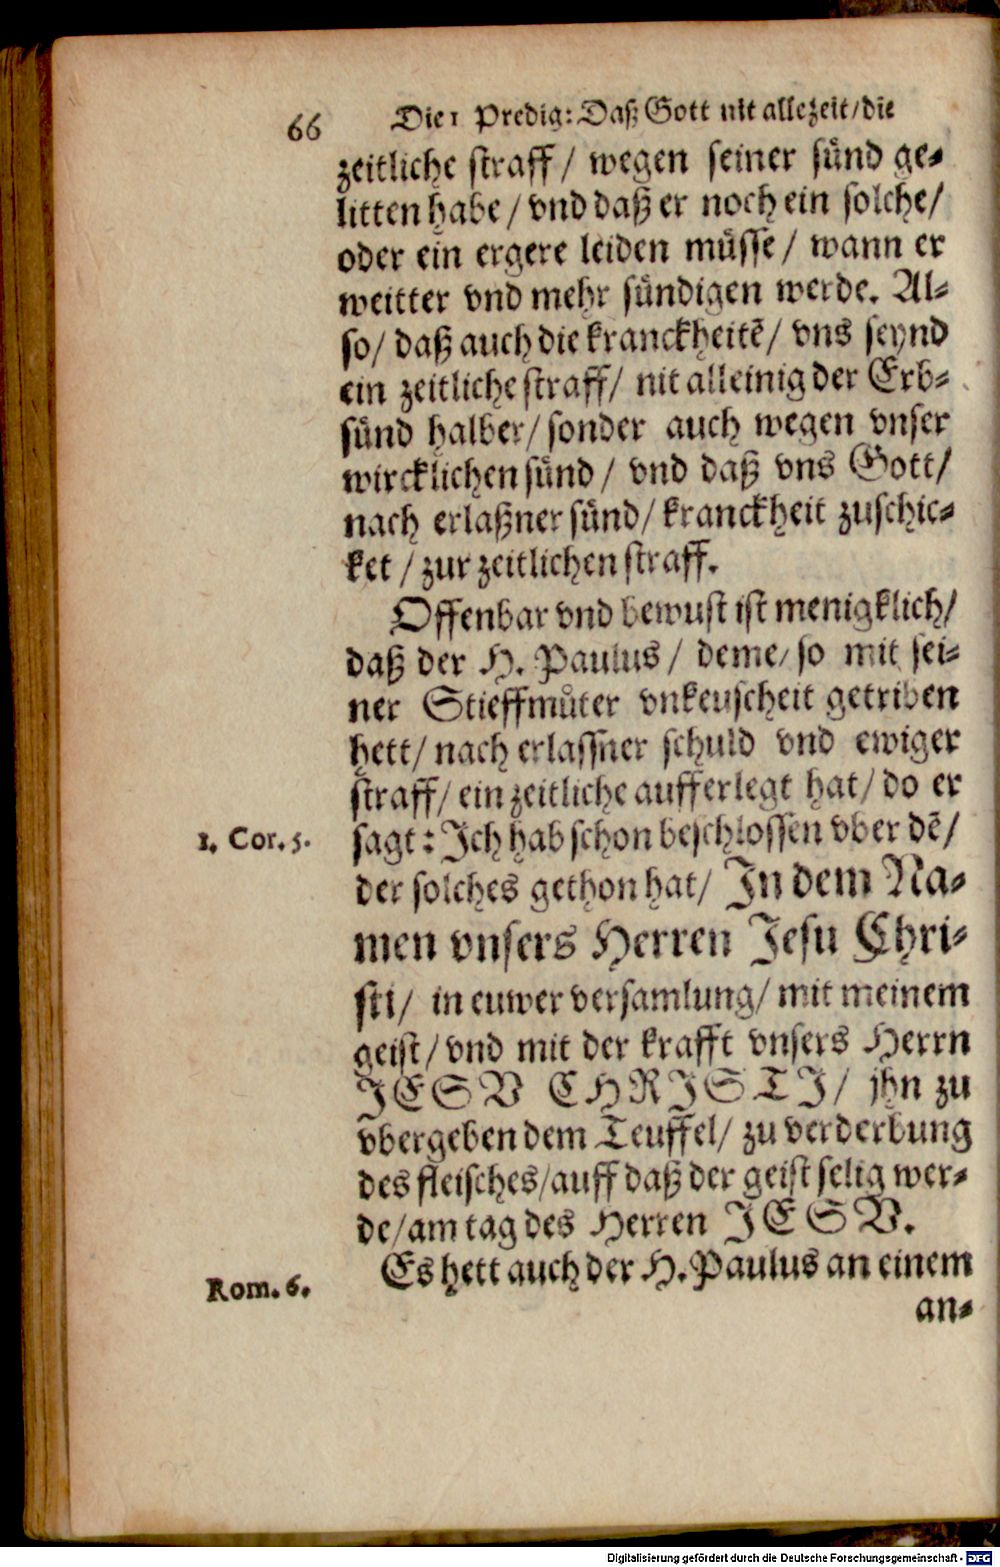 66 Die 1 Predig: Daß Gott nit allezeit/die
zeitliche straff / wegen seiner sünd ge-
litten habe / vnd daß er noch ein solche/
oder ein ergere leiden müsse / wann er
weitter vnd mehr sündigen werde. Al-
so/ daß auch die kranckheitē/ vns seynd
ein zeitliche straff/ nit alleinig der Erb-
sünd halber/ sonder auch wegen vnser
wircklichen sünd / vnd daß vns Gott/
nach erlaßner sünd/ kranckheit zuschic-
ket / zur zeitlichen straff.
Offenbar vnd bewust ist menigklich/
daß der H. Paulus/ deme/ so mit sei-
ner Stieffmůter vnkeuscheit getriben
hett/ nach erlassner schuld vnd ewiger
straff/ ein zeitliche aufferlegt hat/ do er
1. Cor. 5.
sagt: Ich hab schon beschlossen vber dē/
der solches gethon hat/ In dem Na-
men vnsers Herren Jesu Chri-
sti/ in euwer versamlung/ mit meinem
geist/ vnd mit der krafft vnsers Herrn
JESV CHRISTI/ jhn zu
vbergeben dem Teuffel/ zu verderbung
des fleisches/auff daß der geist selig wer-
de/am tag des Herren JESV.
Rom. 6.
Es hett auch der H. Paulus an einem
an-
Digitalisierung gefördert durch die Deutsche Forschungsgemeinschaft - DFG